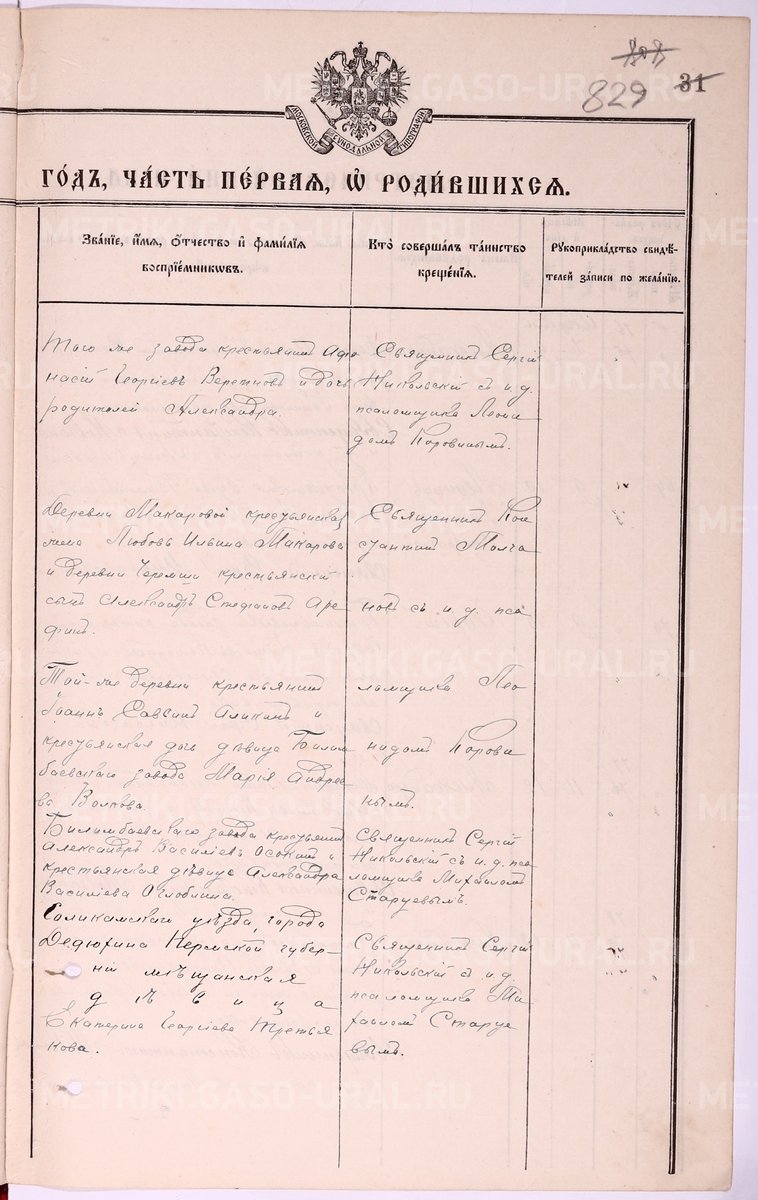 829
31
МОСКОВСКОЙ СѴНОДАЛЬНОЙ ТИПОГРАФІИ
ГО́ДЪ, ЧА́СТЬ ПЕ́РВАЯ, Ѡ҆ РОДИ́ВШИХСѦ.
Зва́нїе, и҆́мѧ, ѻ҆́тчество и҆ фами́лїѧ
воспрїе́мникѡвъ.
Кто̀ соверша́лъ та́инство
креще́нїѧ.
Рꙋкоприкла́дство свидѣ́-
телей за́писи по жела́нїю.
Того же завода крестьянинъ Афа
насій Георгіевъ Веретновъ и дочь
родителей Александра.
Священникъ Сергій
Никольскій съ и.д.
псаломщика Леони
домъ Коровинымъ.
Деревни Макаровой крестьянская
жена Любовь Ильина Макарова
и деревни Черемши крестьянскій
сынъ Александръ Стефановъ Аре
финъ.
Той-же деревни крестьянинъ
Іоаннъ Савсинъ Аликинъ и
крестьянская дочь дѣвица Билим
баевскаго завода Марія Андрее
ва Волкова.
Священникъ Кон
стантинъ Молча
новъ съ и.д. пса
ломщика Лео
нидомъ Корови
нымъ.
Билимбаевскаго завода крестьянинъ
Александръ Васильевъ Осокинъ и
крестьянская дѣвица Александра
Васильева Оглоблина.
Священникъ Сергій
Никольскій съ и.д. пса
ломщика Михаиломъ
Старцевымъ.
Соликамскаго уѣзда, города
Дедюхина Пермской губер-
ніи мѣщанская
дѣвица
Екатерина Георгіева Третья
кова.
Священникъ Сергій
Никольскій съ и.д.
псаломщика Ми
хаиломъ Старце
вымъ.
METRIKI.GASO-URAL.RU